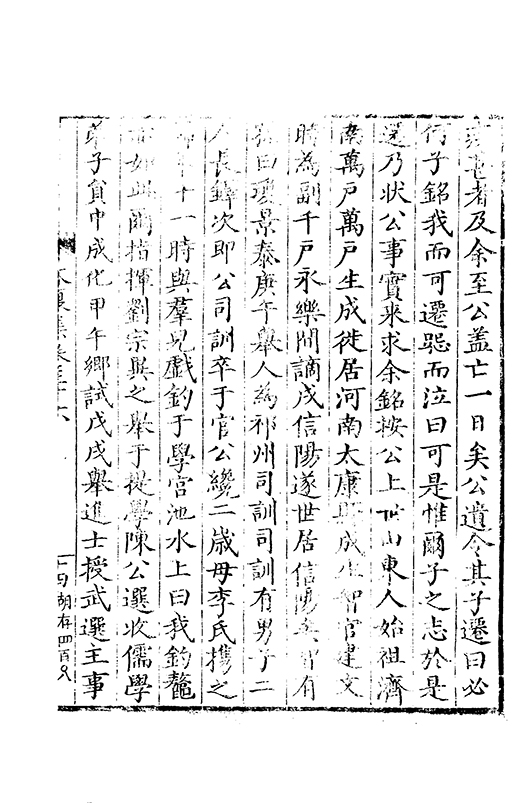 甚者及余至公盖亡一日矣公遺令其子遷曰必
何子銘我而可遷跽而泣曰可是惟爾子之志於是
遷乃狀公事實来求余銘按公上世山東人始祖濟
南萬戶萬戶生成徙居河南太康縣成生智官建文
時為副千戶永樂間謫戍信陽遂世居信陽矣智有
曰瓊景泰庚午舉人為祁州司訓司訓有男子二
人長鐸次即公司訓卒于官公纔二歲母李氏携之
十一時與羣兒戲釣于學宮池水上曰我釣鰲
如此爾指揮劉宗與之舉于提學陳公選收儒學
弟子貟中成化甲午鄉試戊戌舉進士授武選主事
大復集卷三十六
十四 湖存四百